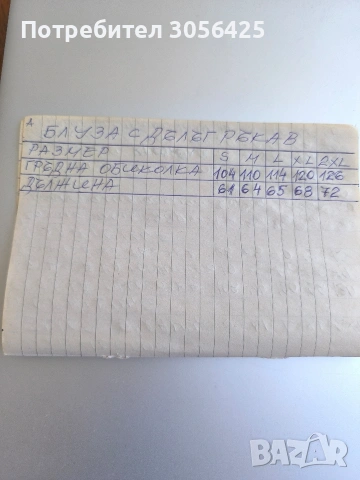 Потребител 3056425
БЛУЗА С ДЪЛЪГ РЪКАВ
РАЗМЕР S M L XL 2XL
ГРЪДНА ОБИКОЛКА 104 110 114 120 126
ДЪЛЖИНА 61 64 65 68 72
BAZAR
bg